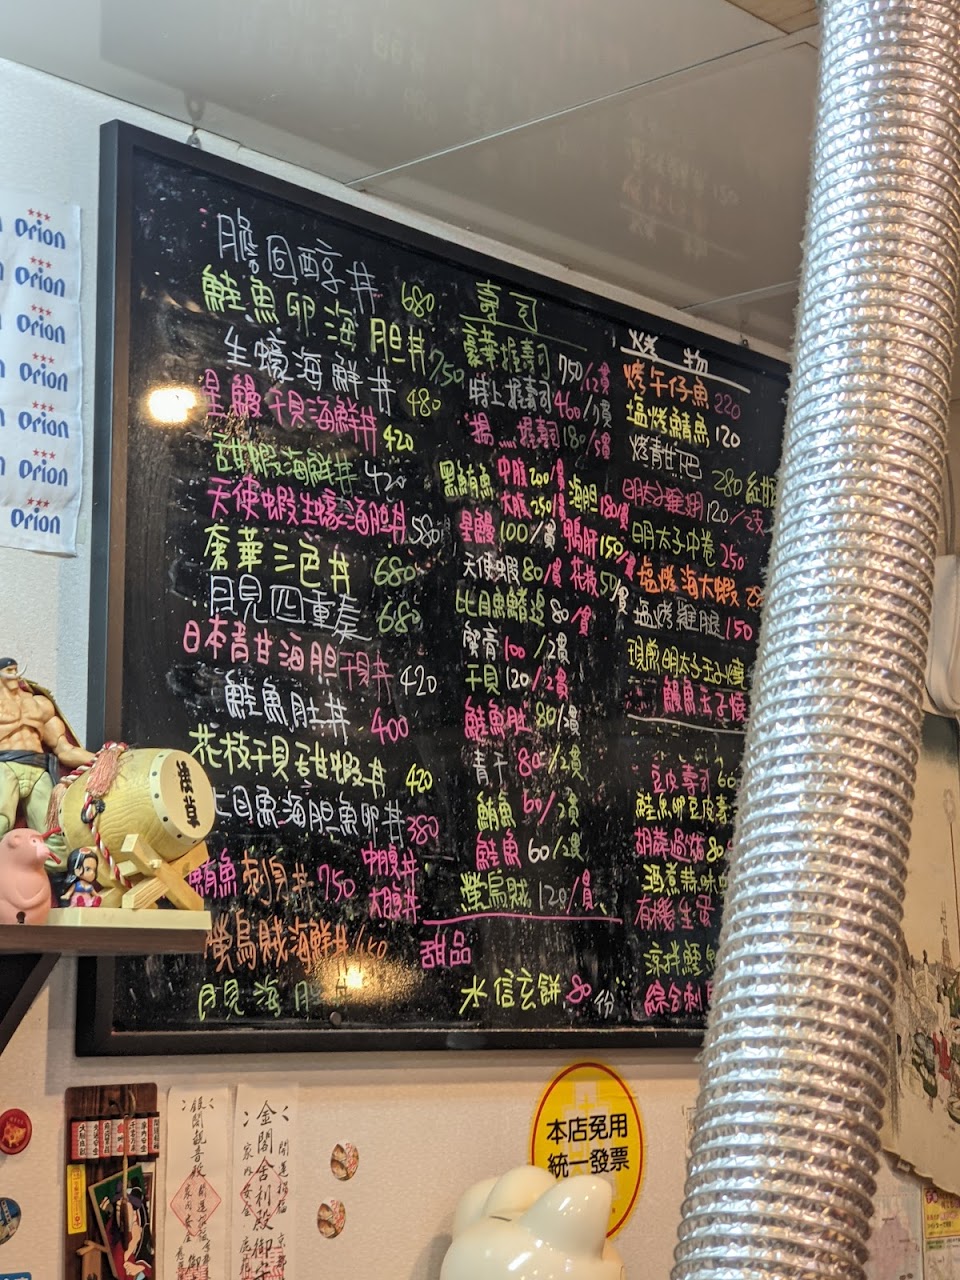 Orion
Orion
Orion
Orion
Orion
Orion
Orion
膽固醇丼 680
鮭魚卵海胆丼 750
生蠔海鮮丼 480
星鰻干貝海鮮丼 420
甜蝦海鮮丼 420
天使蝦生蠔海胆丼 580
奢華三色丼 680
月見四重奏 680
日本青甘海胆干貝丼 420
鮭魚肚丼 400
花枝干貝甜蝦丼 420
比目魚海胆魚卵丼 380
鮪魚刺身丼 750 中腹丼
大腹丼
螢烏賊海鮮丼
月見海胆
壽司
豪華握壽司 750/12貫
特上握壽司 460/7貫
握壽司 180/5貫
黑鮪魚 中腹200/貫
大腹250/貫
海胆 180/貫
星鰻 100/貫 鴨肝 150/貫
天使蝦 80/貫 花枝 50/貫
比目魚鰭邊 80/貫
蟹膏 100/2貫
干貝 120/2貫
鮭魚肚 80/2貫
青干 80/2貫
鮪魚 60/2貫
鮭魚 60/2貫
螢烏賊 120/貫
甜品
水信玄餅 80份
烤物
烤午仔魚 220
塩烤鯖魚 120
烤青甘 280
明太子雞翅 120/2支
明太子中卷 250
塩烤海大蝦
塩烤雞腿 150
現煎明太子玉子燒
鰻魚玉子燒
豆皮壽司 60
鮭魚卵豆皮壽
胡麻過貓 80
酒煮蒜味
有機生蛋
涼拌鱈
綜合刺
淺草
銀閣觀音殿
金閣舍利殿
開運招福
家內安全
本店免用
統一發票